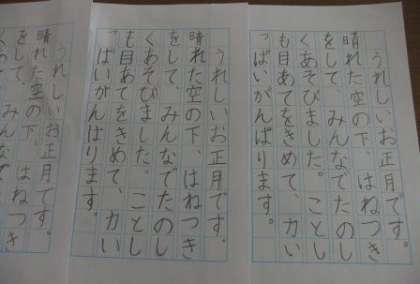 うれしいお正月です。
晴れた空の下、はねつき
をして、みんなでたのし
くあそびました。ことし
も目あてをきめて、力い
っぱいがんばります。
うれしいお正月です。
晴れた空の下、はねつき
をして、みんなでたのし
くあそびました。ことし
も目あてをきめて、力い
っぱいがんばります。
うれしいお正月です。
晴れた空の下、はねつき
をして、みんなで